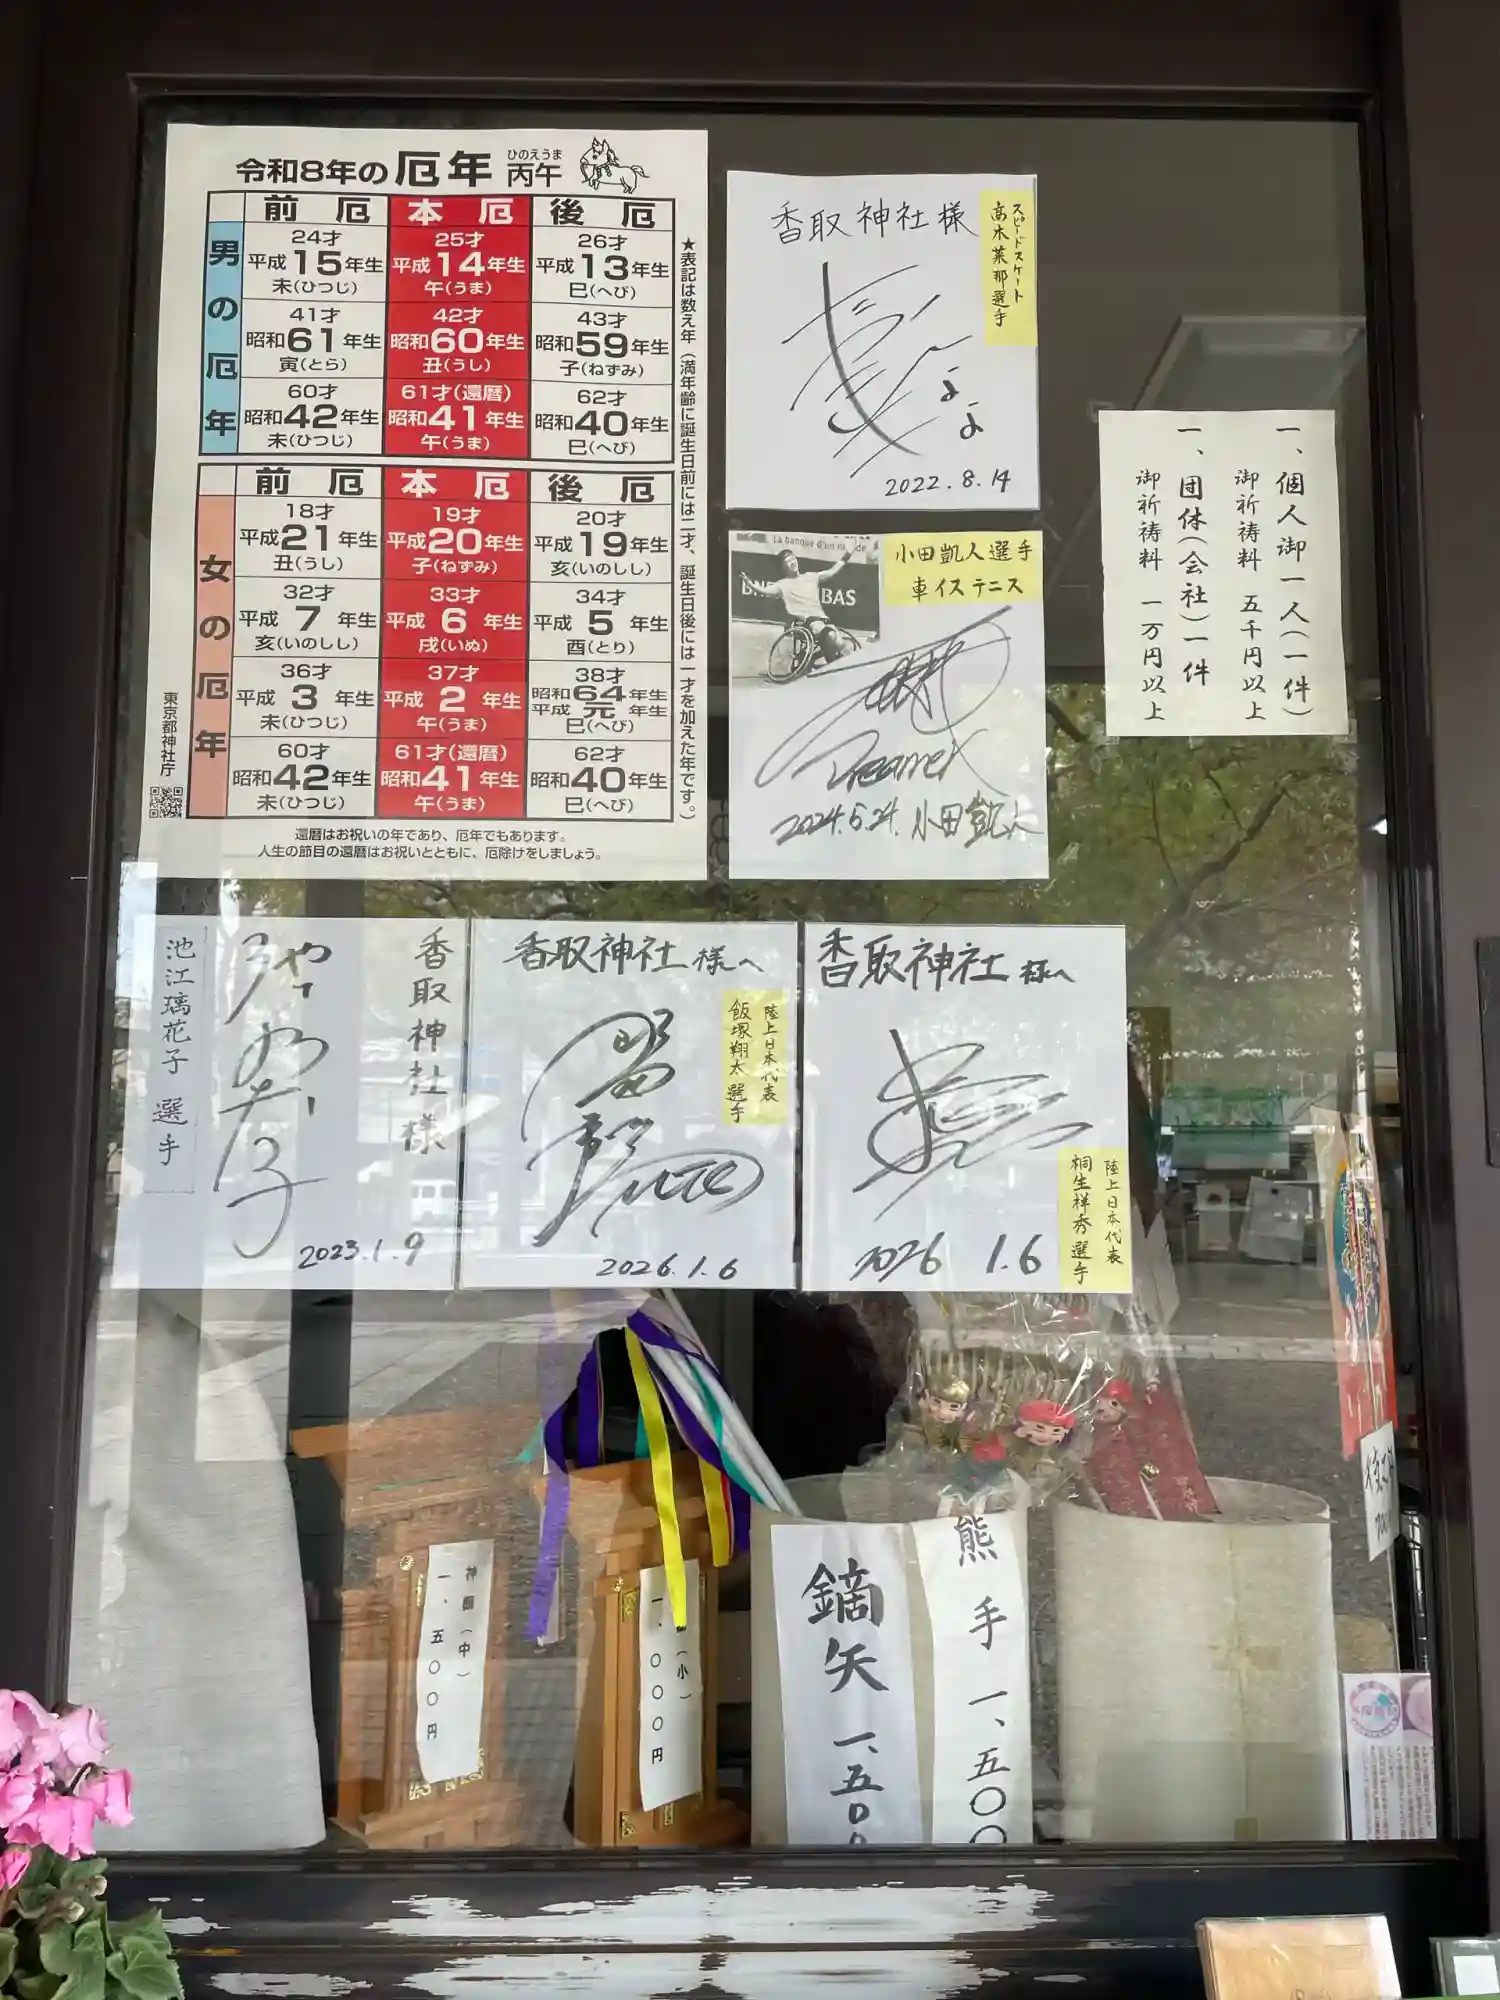 令和8年の厄年 丙午
ひのえうま
前厄 本厄 後厄
男の厄年
24才 25才 26才
平成15年生 平成14年生 平成13年生
未(ひつじ) 午(うま) 巳(へび)
41才 42才 43才
昭和61年生 昭和60年生 昭和59年生
寅(とら) 丑(うし) 子(ねずみ)
60才 61才(還暦) 62才
昭和42年生 昭和41年生 昭和40年生
未(ひつじ) 午(うま) 巳(へび)
前厄 本厄 後厄
女の厄年
18才 19才 20才
平成21年生 平成20年生 平成19年生
丑(うし) 子(ねずみ) 亥(いのしし)
32才 33才 34才
平成7年生 平成6年生 平成5年生
亥(いのしし) 戌(いぬ) 酉(とり)
36才 37才 38才
平成3年生 平成2年生 昭和64年生
平成元年生
未(ひつじ) 午(うま) 巳(へび)
60才 61才(還暦) 62才
昭和42年生 昭和41年生 昭和40年生
未(ひつじ) 午(うま) 巳(へび)
★表記は数え年(満年齢に誕生日前には二才、誕生日後には一才を加えた年です。)
東京都神社庁
還暦はお祝いの年であり、厄年でもあります。
人生の節目の還暦はお祝いとともに、厄除けをしましょう。
香取神社様
スピードスケート
高木菜那選手
2022.8.14
La banque d'un
BAS
小田凱人選手
車イステニス
Dreamer
2024.6.24. 小田凱人
一、個人御一人(一件)
御祈祷料 五千円以上
一、団体(会社)一件
御祈祷料 一万円以上
香取神社様
池江璃花子 選手
2023.1.9
香取神社様へ
陸上日本代表
飯塚翔太選手
2026.1.6
香取神社様へ
陸上日本代表
桐生祥秀選手
2026 1.6
神棚(中)
一、五〇〇円
(小)
一、〇〇〇円
鏑矢 一、五〇〇
熊手 一、五〇〇